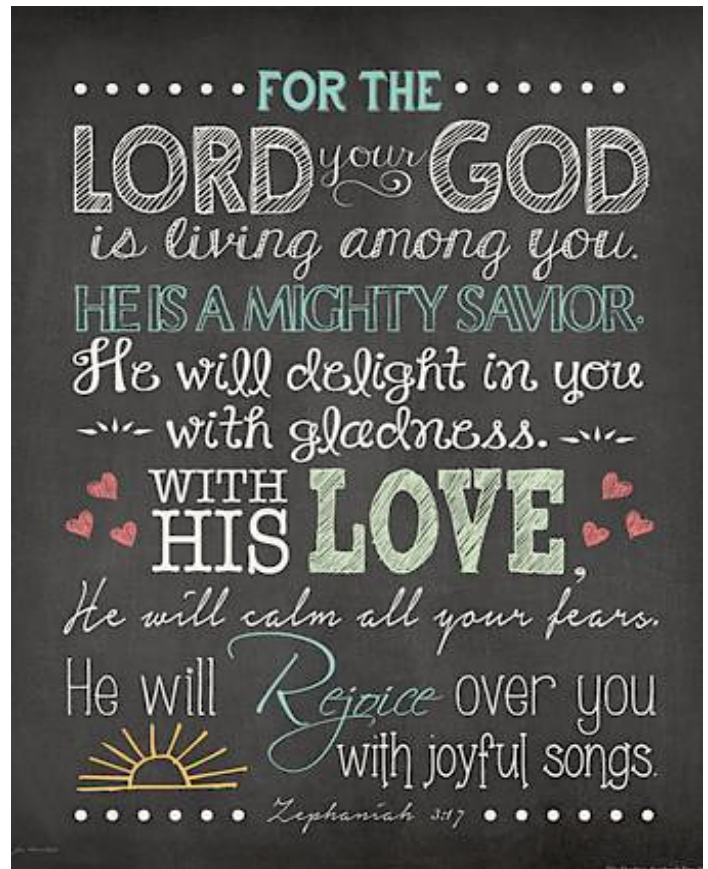 FOR THE
LORD your GOD
is living among you.
HE IS A MIGHTY SAVIOR.
He will delight in you
with gladness.
WITH HIS LOVE,
He will calm all your fears.
He will Rejoice over you
with joyful songs.
Zephaniah 3:17